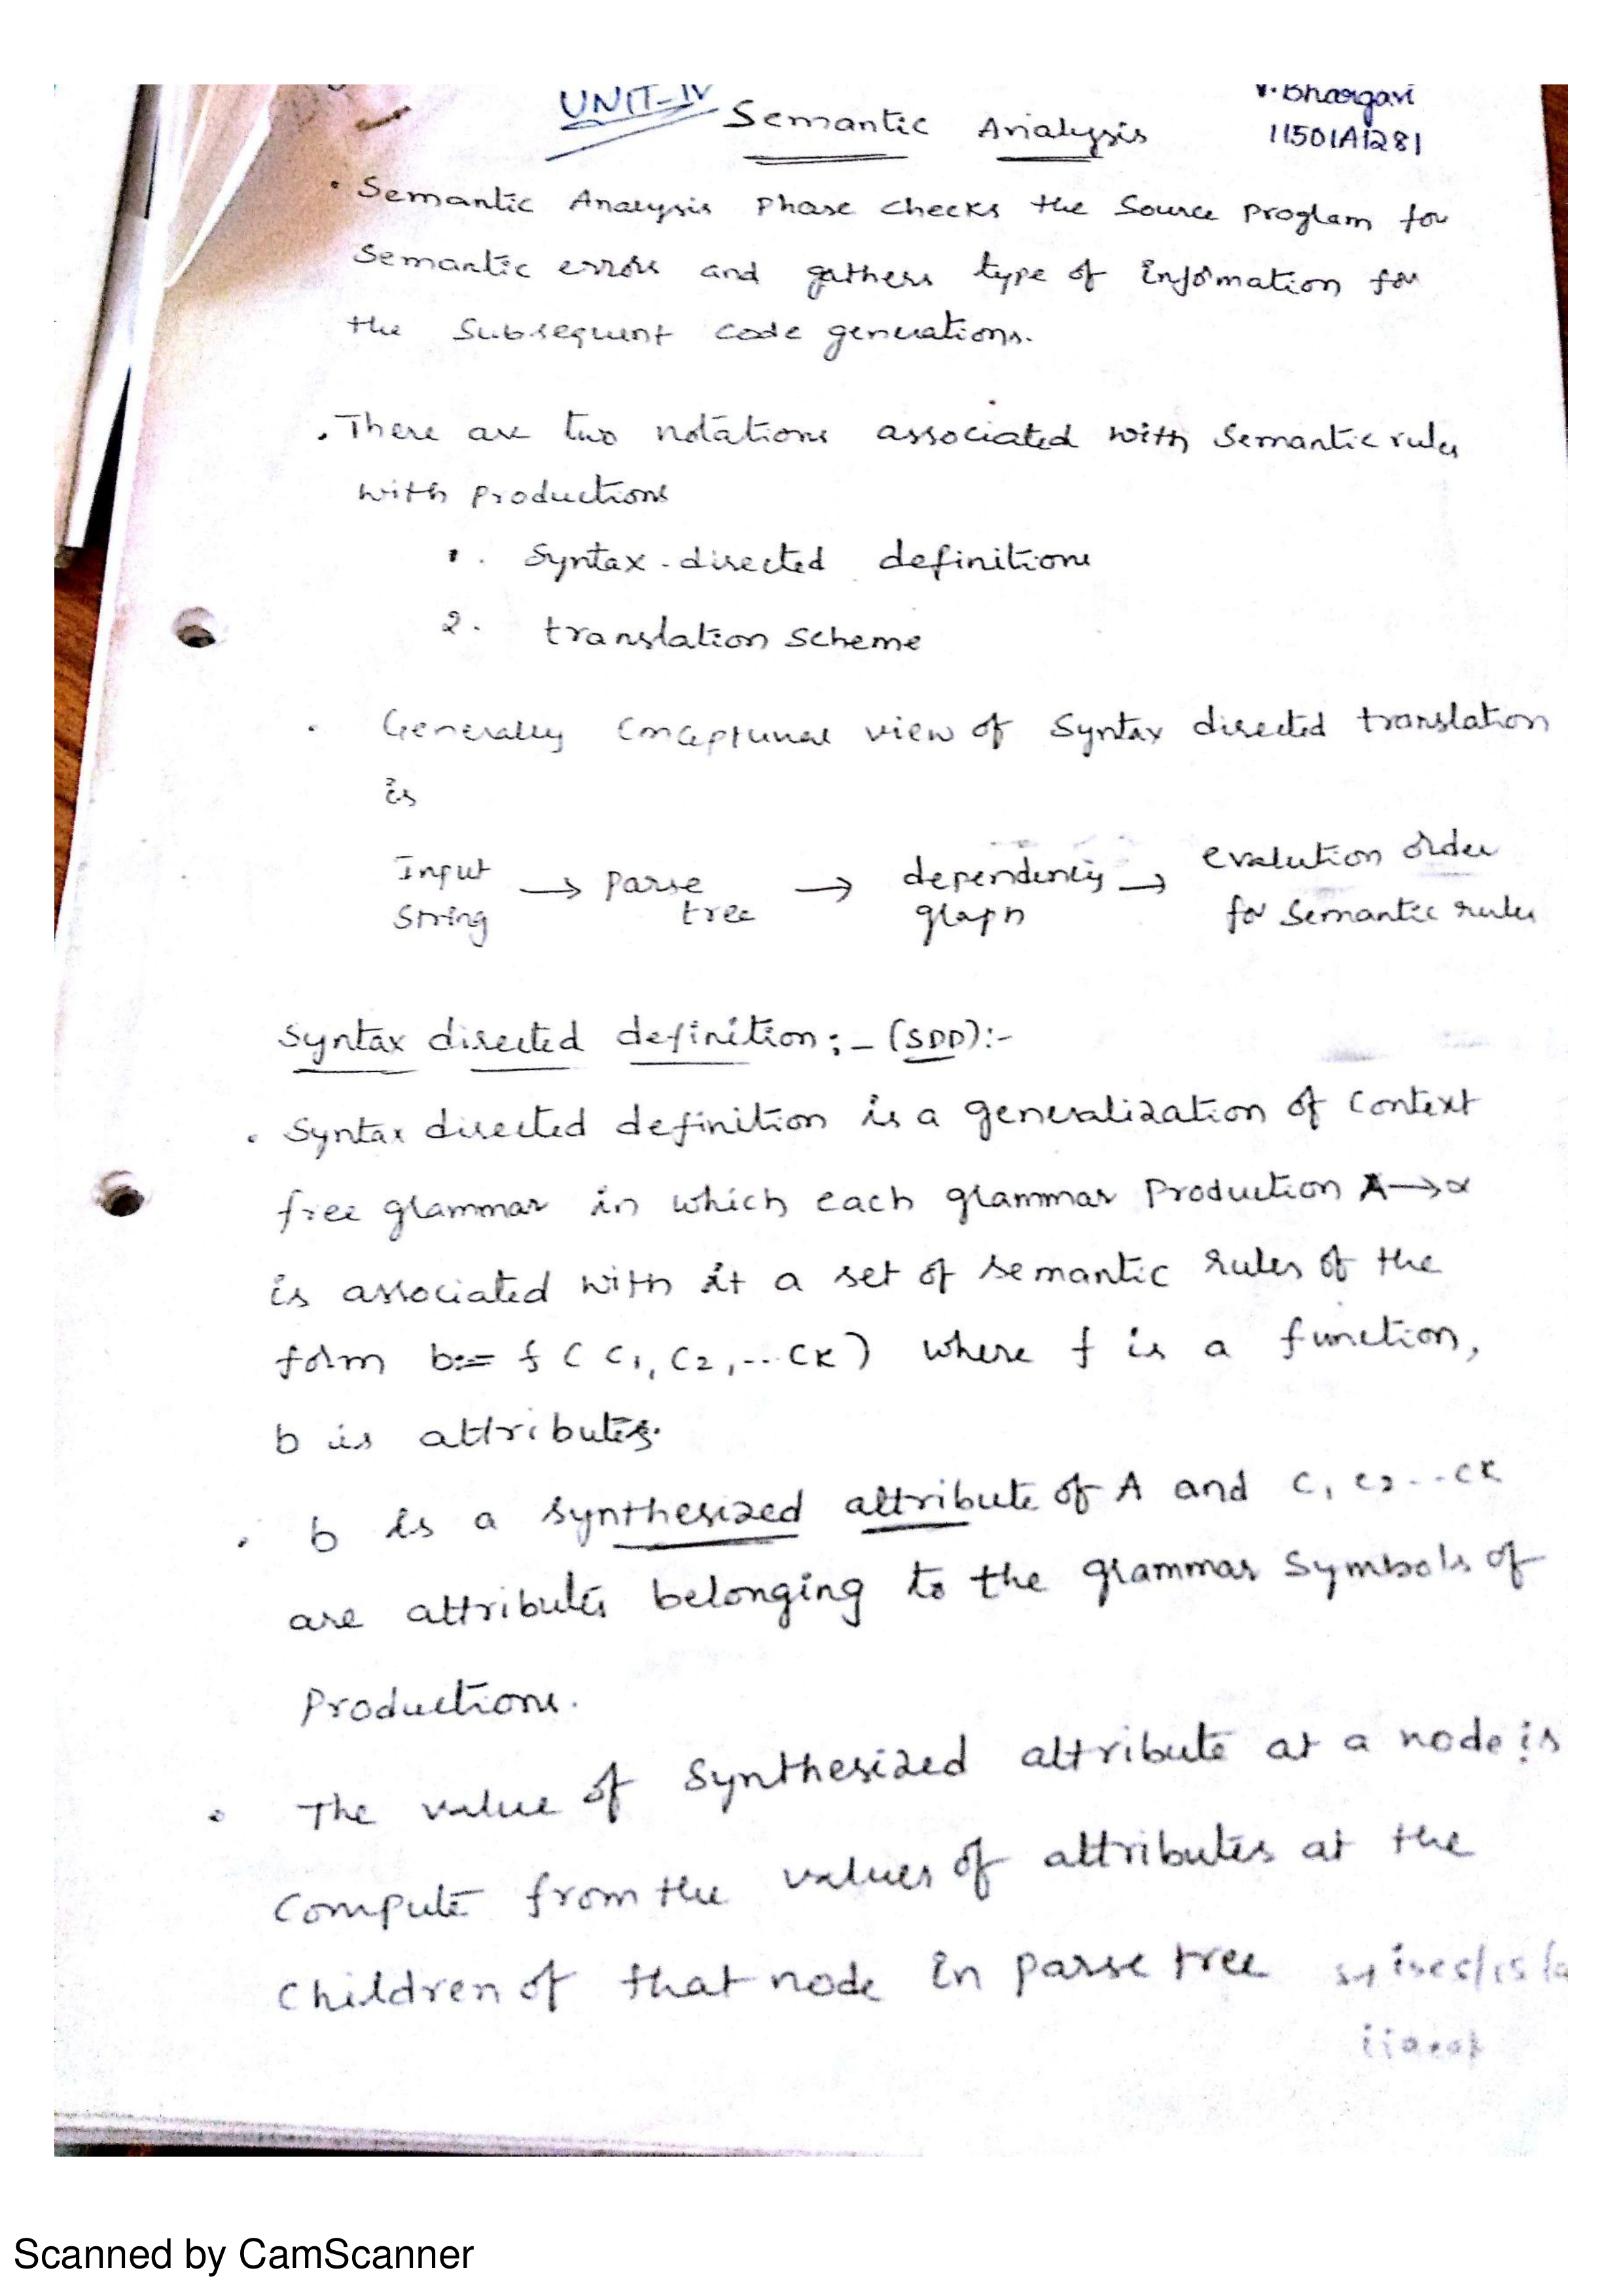 UNIT-IV Semantic Analysis
V. Bhargavi
11501A1281
• Semantic Analysis Phase checks the Source program for
Semantic errors and gathers type of information for
the Subsequent code generations.
• There are two notations associated with Semantic rules
with productions
1. Syntax-directed definitions
2. translation scheme
• Generally Conceptunal view of Syntax directed translation
is
Input String → Parse tree → dependency graph → evalution order for Semantic rules
Syntax directed definition :- (SDD):-
• Syntax directed definition is a generalization of Context
free grammar in which each grammar Production A→α
is associated with it a set of semantic rules of the
form b:= f ( C1, C2, ... CK) where f is a function,
b is attributes.
• b is a synthesized attribute of A and C1 C2 ... CK
are attributes belonging to the grammar Symbols of
Productions.
• The value of Synthesized attribute at a node is
Compute from the values of attributes at the
Children of that node in parse tree
Scanned by CamScanner